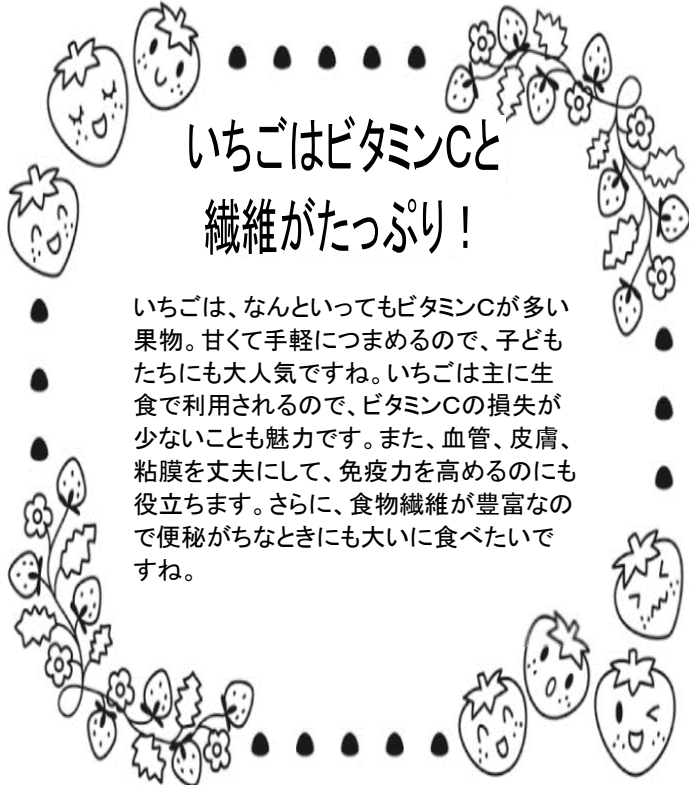 いちごはビタミンCと
繊維がたっぷり！
いちごは、なんといってもビタミンCが多い
果物。甘くて手軽につまめるので、子ども
たちにも大人気ですね。いちごは主に生
食で利用されるので、ビタミンCの損失が
少ないことも魅力です。また、血管、皮膚、
粘膜を丈夫にして、免疫力を高めるのにも
役立ちます。さらに、食物繊維が豊富なの
で便秘がちなときにも大いに食べたいで
すね。